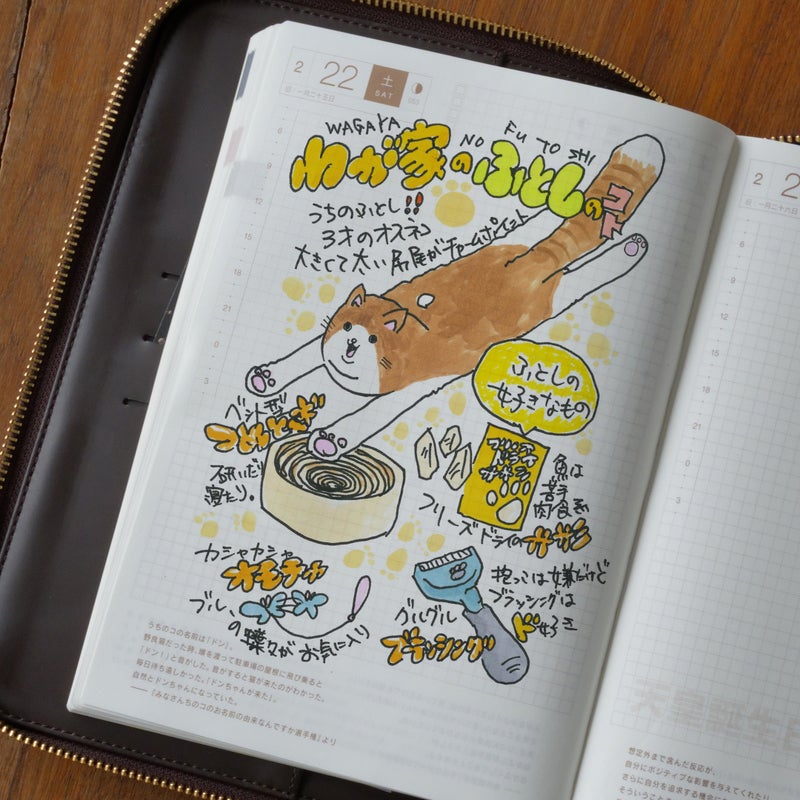 2 22 土 SAT
旧：一月二十五日 053
WAGAYA NO FU TO SHI
わが家のふとしのコト
うちのふとし!!
3才のオスネコ
大きくて太い尻尾がチャームポイント
ふとしの
好きなもの
ベッド型
つめとぎ
研いだり
寝たり。
魚は
苦手
肉食系
フリーズドライのササミ
カシャカシャ
オモチャ
ブルーの蝶々がお気に入り
抱っこは嫌だけど
ブラッシングは
ド好き
グルグル
ブラッシング
6
9
12
15
18
21
0
3
うちのコの名前は「ドン」。
野良猫だった時、塀を渡って駐車場の屋根に飛び乗ると
「ドン！」と音がした。音がすると猫が来たのがわかった。
毎日待ち遠しかった。「ドンちゃんが来た」。
自然とドンちゃんになっていた。
――『みなさんちのコのお名前の由来なんですか選手権』より
2 2
旧：一月二十六日
6
9
12
15
18
21
0
3
想定外まで含んだ反応が、
自分にポジティブな影響を与えてくれたり、
さらに自分を追求する機会に
そういうことも